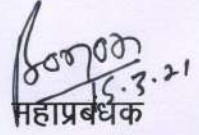 15.3.21
महाप्रबंधक